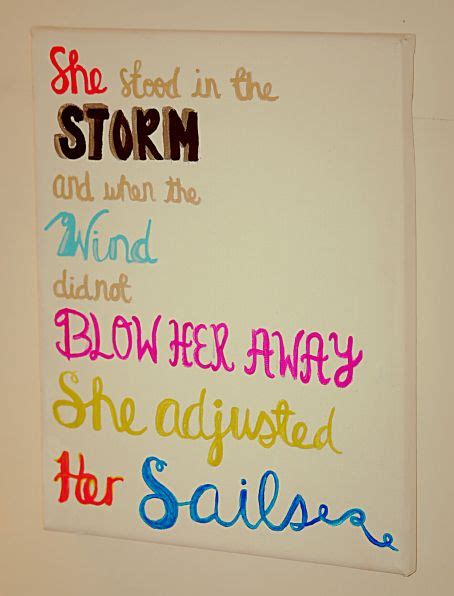 She stood in the
STORM
and when the
Wind
did not
BLOW HER AWAY
She adjusted
Her Sails